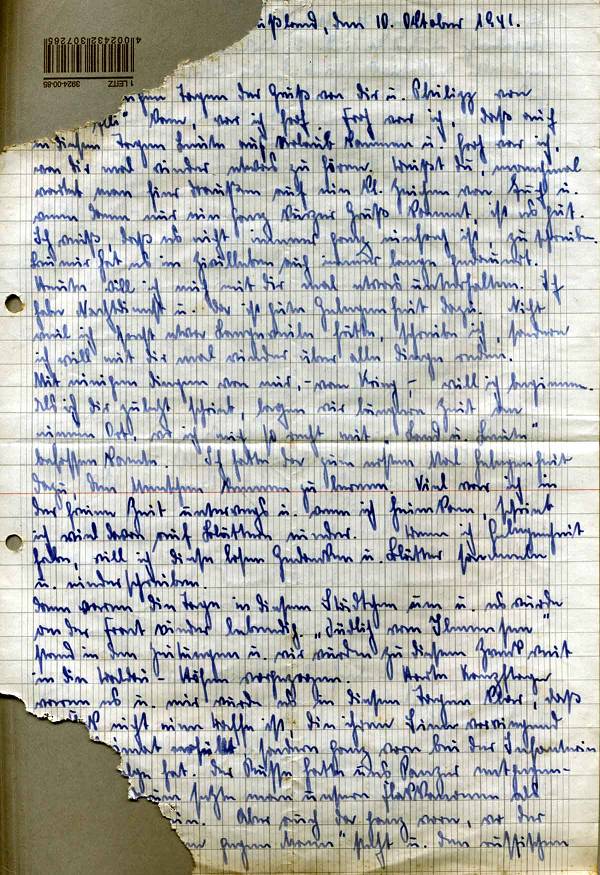 4 002432 307265
1 LEITZ 3924-00-85
ußland, den 10. Oktober 1941.
igen Tagen der Gruß von dir u. Philipp von
kam, war ich froh. Froh war ich, daß auch
in diesen Tagen Leute auf Urlaub kommen u. froh war ich,
von dir mal wieder etwas zu hören. Weißt du, manchmal
wartet man hier draußen auf ein kl. Zeichen von Euch u.
wenn dann nur ein ganz kurzer Gruß kommt, ist es gut.
Ich weiß, daß es nicht immer ganz einfach ist, zu schreiben.
Bei mir hat es im Zivilleben auch immer lange gedauert.
Heute will ich mich mit dir mal etwas unterhalten. Ich
habe Nachtdienst u. da ist gute Gelegenheit dazu. Nicht
weil ich sonst etwa Langeweile hätte, schreibe ich, sondern
ich will mit dir mal wieder über alle Dinge reden.
Mit einigen Dingen von mir, – vom Krieg –, will ich beginnen.
Als ich dir zuletzt schrieb, lagen wir längere Zeit an
einem Ort, wo ich mich so recht mit „Land u. Leute"
befassen konnte. Ich hatte da zum ersten Mal Gelegenheit
dazu, den Menschen kennen zu lernen. Viel war ich in
der freien Zeit unterwegs u. wenn ich heimkam, schrieb
ich viel davon auf Blättern nieder. Wenn ich Gelegenheit
habe, will ich diese losen Gedanken u. Blätter sammeln
u. niederschreiben.
Dann waren die Tage in diesem Städtchen um u. es wurde
an der Front wieder lebendig. „Südlich vom Ilmensee"
stand in den Zeitungen u. wir wurden zu diesem Zweck mit
in die Waldai-Höhen vorgezogen. Harte Kampftage
waren es u. mir wurde es in diesen Tagen klar, daß
nicht eine Waffe ist, die ihren Sinn vorwiegend
erfüllt, sondern ganz vorn bei der Infanterie
hat. Der Russe hatte uns Panzer
setzte man unsere Flakkanonen als
ein. Aber auch da ganz vorn, wo der
gegen Mann" steht u. den russischen